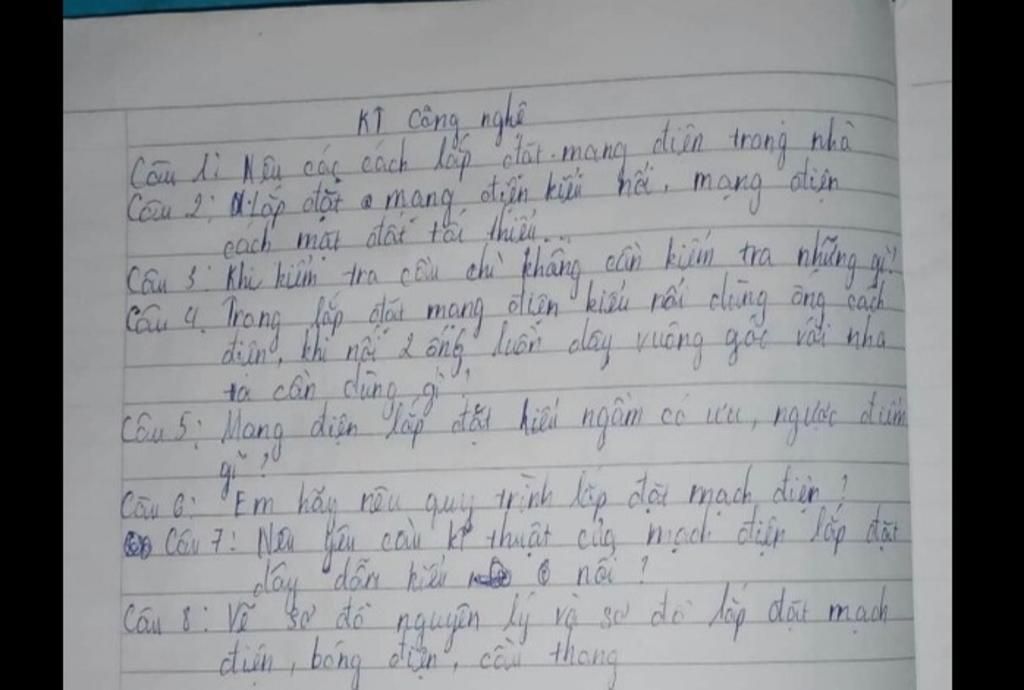 KT Công nghê
Câu 1: Nêu các cách lắp đặt mang điện trong nhà
Câu 2: Lắp đặt mang điện kiểu nổi, mạng điện
cách mặt đất tối thiểu...
Câu 3: Khi kiểm tra cầu chì không cần kiểm tra những gì?
Câu 4. Trong lắp đặt mang điện kiểu nổi dùng ống cách
điện, khi nối 2 ống luồn dây vuông góc với nha
ta cần dùng gì?
Câu 5: Mang điện lắp đặt kiểu ngầm có ưu, ngược điểm
gì?
Câu 6: Em hãy nêu quy trình lắp đặt mạch điện?
Câu 7: Nêu yêu cầu kĩ thuật của mạch điện lắp đặt
dây dẫn kiểu nổi?
Câu 8: Vẽ sơ đồ nguyên lý và sơ đồ lắp đặt mạch
điện, bóng điện, cầu thang